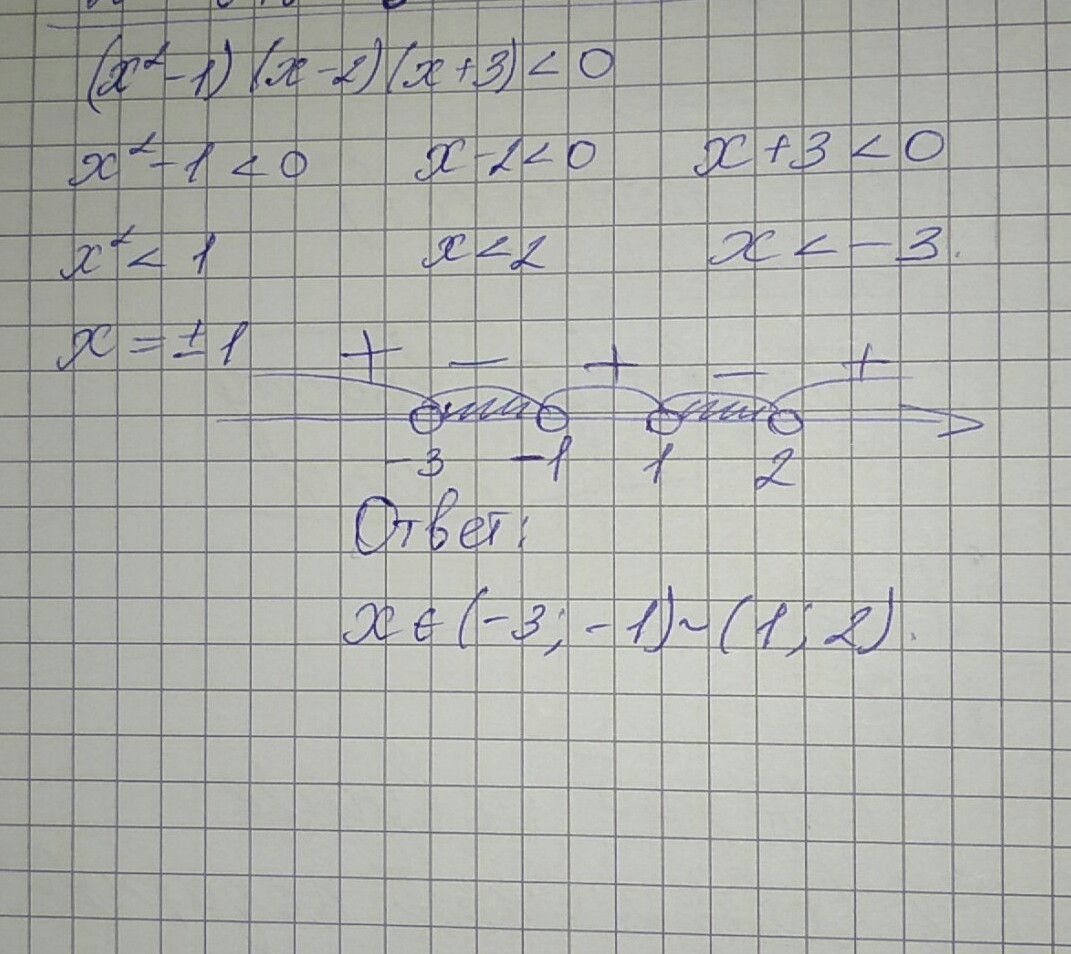 (x²-1)(x-2)(x+3)<0
x²-1<0 x-2<0 x+3<0
x²<1 x<2 x<-3.
x=±1
+ - + - +
-3 -1 1 2
Ответ:
x∈(-3;-1)~(1;2).